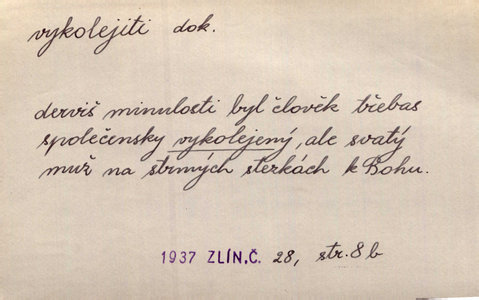 vykolejiti dok.
derviš minulosti byl člověk třebas
společensky vykolejený, ale svatý
muž na strmých sterkách k Bohu.
1937 ZLÍN,Č. 28, str. 8 b